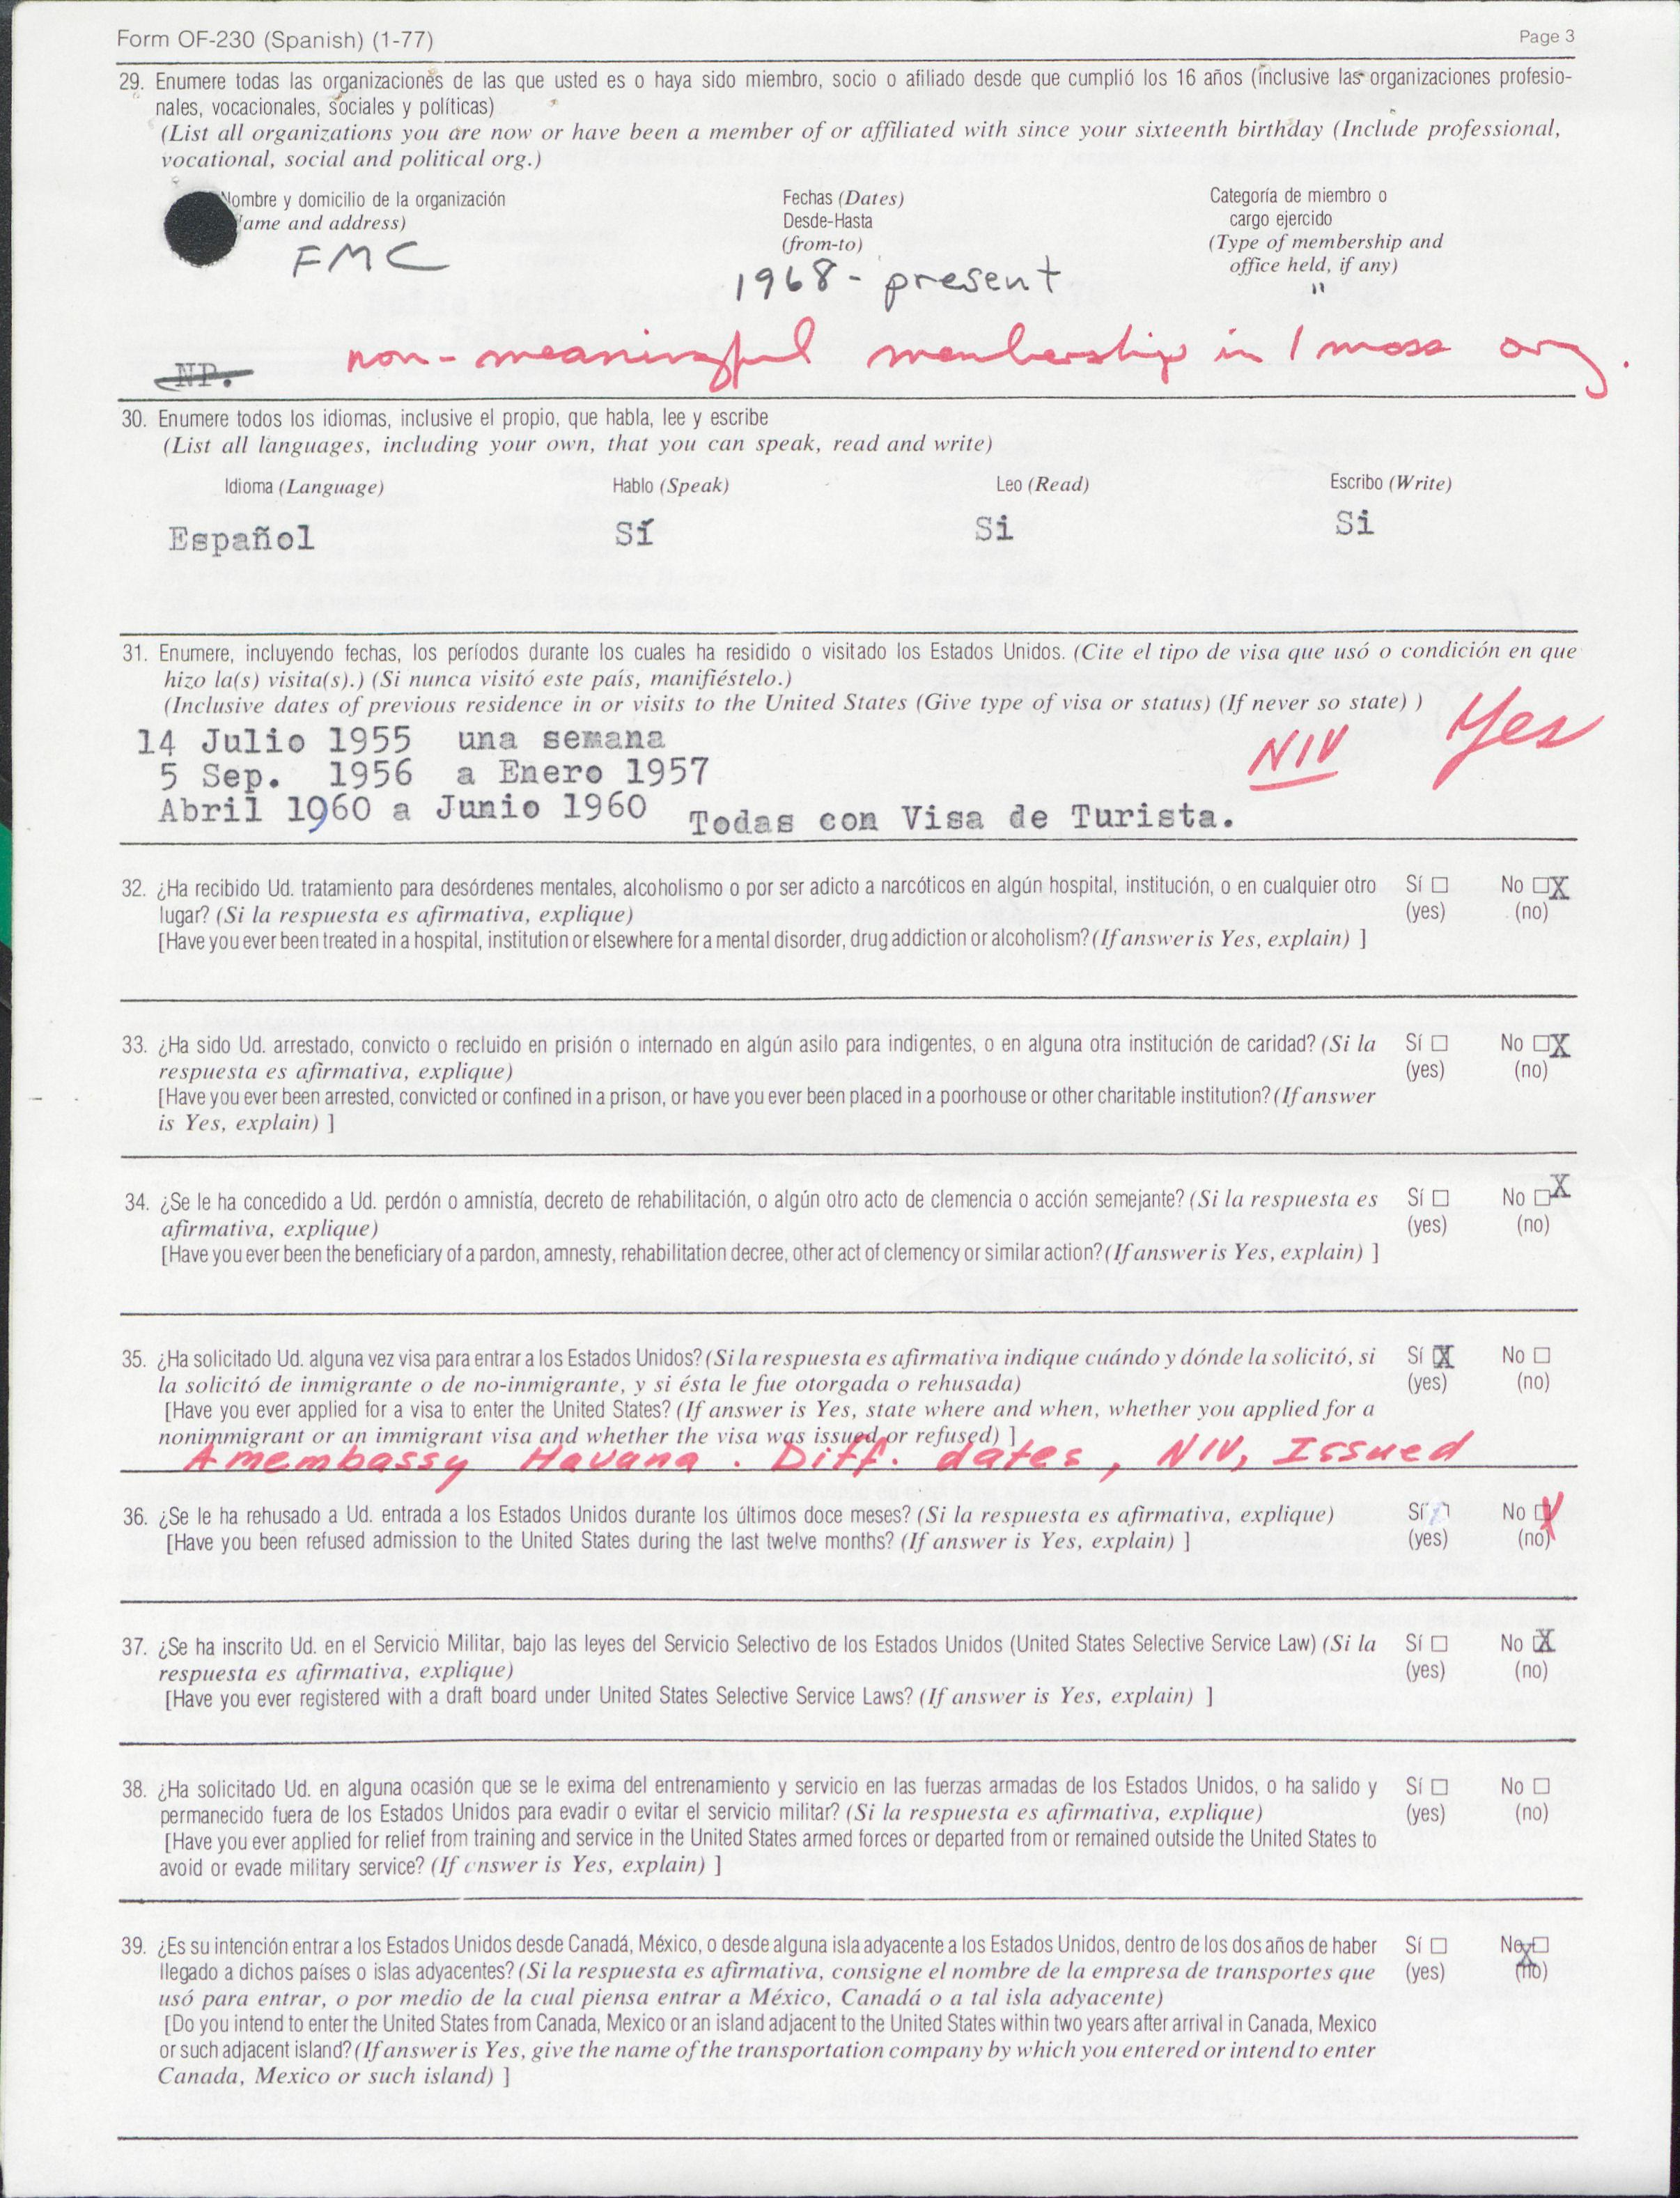 Form OF-230 (Spanish) (1-77)
Page 3
29. Enumere todas las organizaciones de las que usted es o haya sido miembro, socio o afiliado desde que cumplió los 16 años (inclusive las organizaciones profesio-
nales, vocacionales, sociales y políticas)
(List all organizations you are now or have been a member of or affiliated with since your sixteenth birthday (Include professional,
vocational, social and political org.)
Nombre y domicilio de la organización
ame and address)
Fechas (Dates)
Desde-Hasta
(from-to)
Categoría de miembro o
cargo ejercido
(Type of membership and
office held, if any)
FMC
1968 - present
"
non-meaningful membership in 1 mass org.
NP.
30. Enumere todos los idiomas, inclusive el propio, que habla, lee y escribe
(List all languages, including your own, that you can speak, read and write)
Idioma (Language) Hablo (Speak) Leo (Read) Escribo (Write)
Español Sí Si Si
31. Enumere, incluyendo fechas, los períodos durante los cuales ha residido o visitado los Estados Unidos. (Cite el tipo de visa que usó o condición en que
hizo la(s) visita(s).) (Si nunca visitó este país, manifiéstelo.)
(Inclusive dates of previous residence in or visits to the United States (Give type of visa or status) (If never so state) )
14 Julio 1955 una semana
NIV Yes
5 Sep. 1956 a Enero 1957
Abril 1960 a Junio 1960 Todas con Visa de Turista.
32. ¿Ha recibido Ud. tratamiento para desórdenes mentales, alcoholismo o por ser adicto a narcóticos en algún hospital, institución, o en cualquier otro Sí ☐ No ☐X
lugar? (Si la respuesta es afirmativa, explique) (yes) (no)
[Have you ever been treated in a hospital, institution or elsewhere for a mental disorder, drug addiction or alcoholism? (If answer is Yes, explain) ]
33. ¿Ha sido Ud. arrestado, convicto o recluido en prisión o internado en algún asilo para indigentes, o en alguna otra institución de caridad? (Si la Sí ☐ No ☐X
respuesta es afirmativa, explique) (yes) (no)
[Have you ever been arrested, convicted or confined in a prison, or have you ever been placed in a poorhouse or other charitable institution? (If answer
is Yes, explain) ]
34. ¿Se le ha concedido a Ud. perdón o amnistía, decreto de rehabilitación, o algún otro acto de clemencia o acción semejante? (Si la respuesta es Sí ☐ No ☐X
afirmativa, explique) (yes) (no)
[Have you ever been the beneficiary of a pardon, amnesty, rehabilitation decree, other act of clemency or similar action? (If answer is Yes, explain) ]
35. ¿Ha solicitado Ud. alguna vez visa para entrar a los Estados Unidos? (Si la respuesta es afirmativa indique cuándo y dónde la solicitó, si Sí X No ☐
la solicitó de inmigrante o de no-inmigrante, y si ésta le fue otorgada o rehusada) (yes) (no)
[Have you ever applied for a visa to enter the United States? (If answer is Yes, state where and when, whether you applied for a
nonimmigrant or an immigrant visa and whether the visa was issued or refused) ]
Amembassy Havana. Diff. dates, NIV, Issued
36. ¿Se le ha rehusado a Ud. entrada a los Estados Unidos durante los últimos doce meses? (Si la respuesta es afirmativa, explique) Sí ☐ No X
[Have you been refused admission to the United States during the last twelve months? (If answer is Yes, explain) ] (yes) (no)
37. ¿Se ha inscrito Ud. en el Servicio Militar, bajo las leyes del Servicio Selectivo de los Estados Unidos (United States Selective Service Law) (Si la Sí ☐ No X
respuesta es afirmativa, explique) (yes) (no)
[Have you ever registered with a draft board under United States Selective Service Laws? (If answer is Yes, explain) ]
38. ¿Ha solicitado Ud. en alguna ocasión que se le exima del entrenamiento y servicio en las fuerzas armadas de los Estados Unidos, o ha salido y Sí ☐ No ☐
permanecido fuera de los Estados Unidos para evadir o evitar el servicio militar? (Si la respuesta es afirmativa, explique) (yes) (no)
[Have you ever applied for relief from training and service in the United States armed forces or departed from or remained outside the United States to
avoid or evade military service? (If answer is Yes, explain) ]
39. ¿Es su intención entrar a los Estados Unidos desde Canadá, México, o desde alguna isla adyacente a los Estados Unidos, dentro de los dos años de haber Sí ☐ No ☐
llegado a dichos países o islas adyacentes? (Si la respuesta es afirmativa, consigne el nombre de la empresa de transportes que (yes) X (no)
usó para entrar, o por medio de la cual piensa entrar a México, Canadá o a tal isla adyacente)
[Do you intend to enter the United States from Canada, Mexico or an island adjacent to the United States within two years after arrival in Canada, Mexico
or such adjacent island? (If answer is Yes, give the name of the transportation company by which you entered or intend to enter
Canada, Mexico or such island) ]